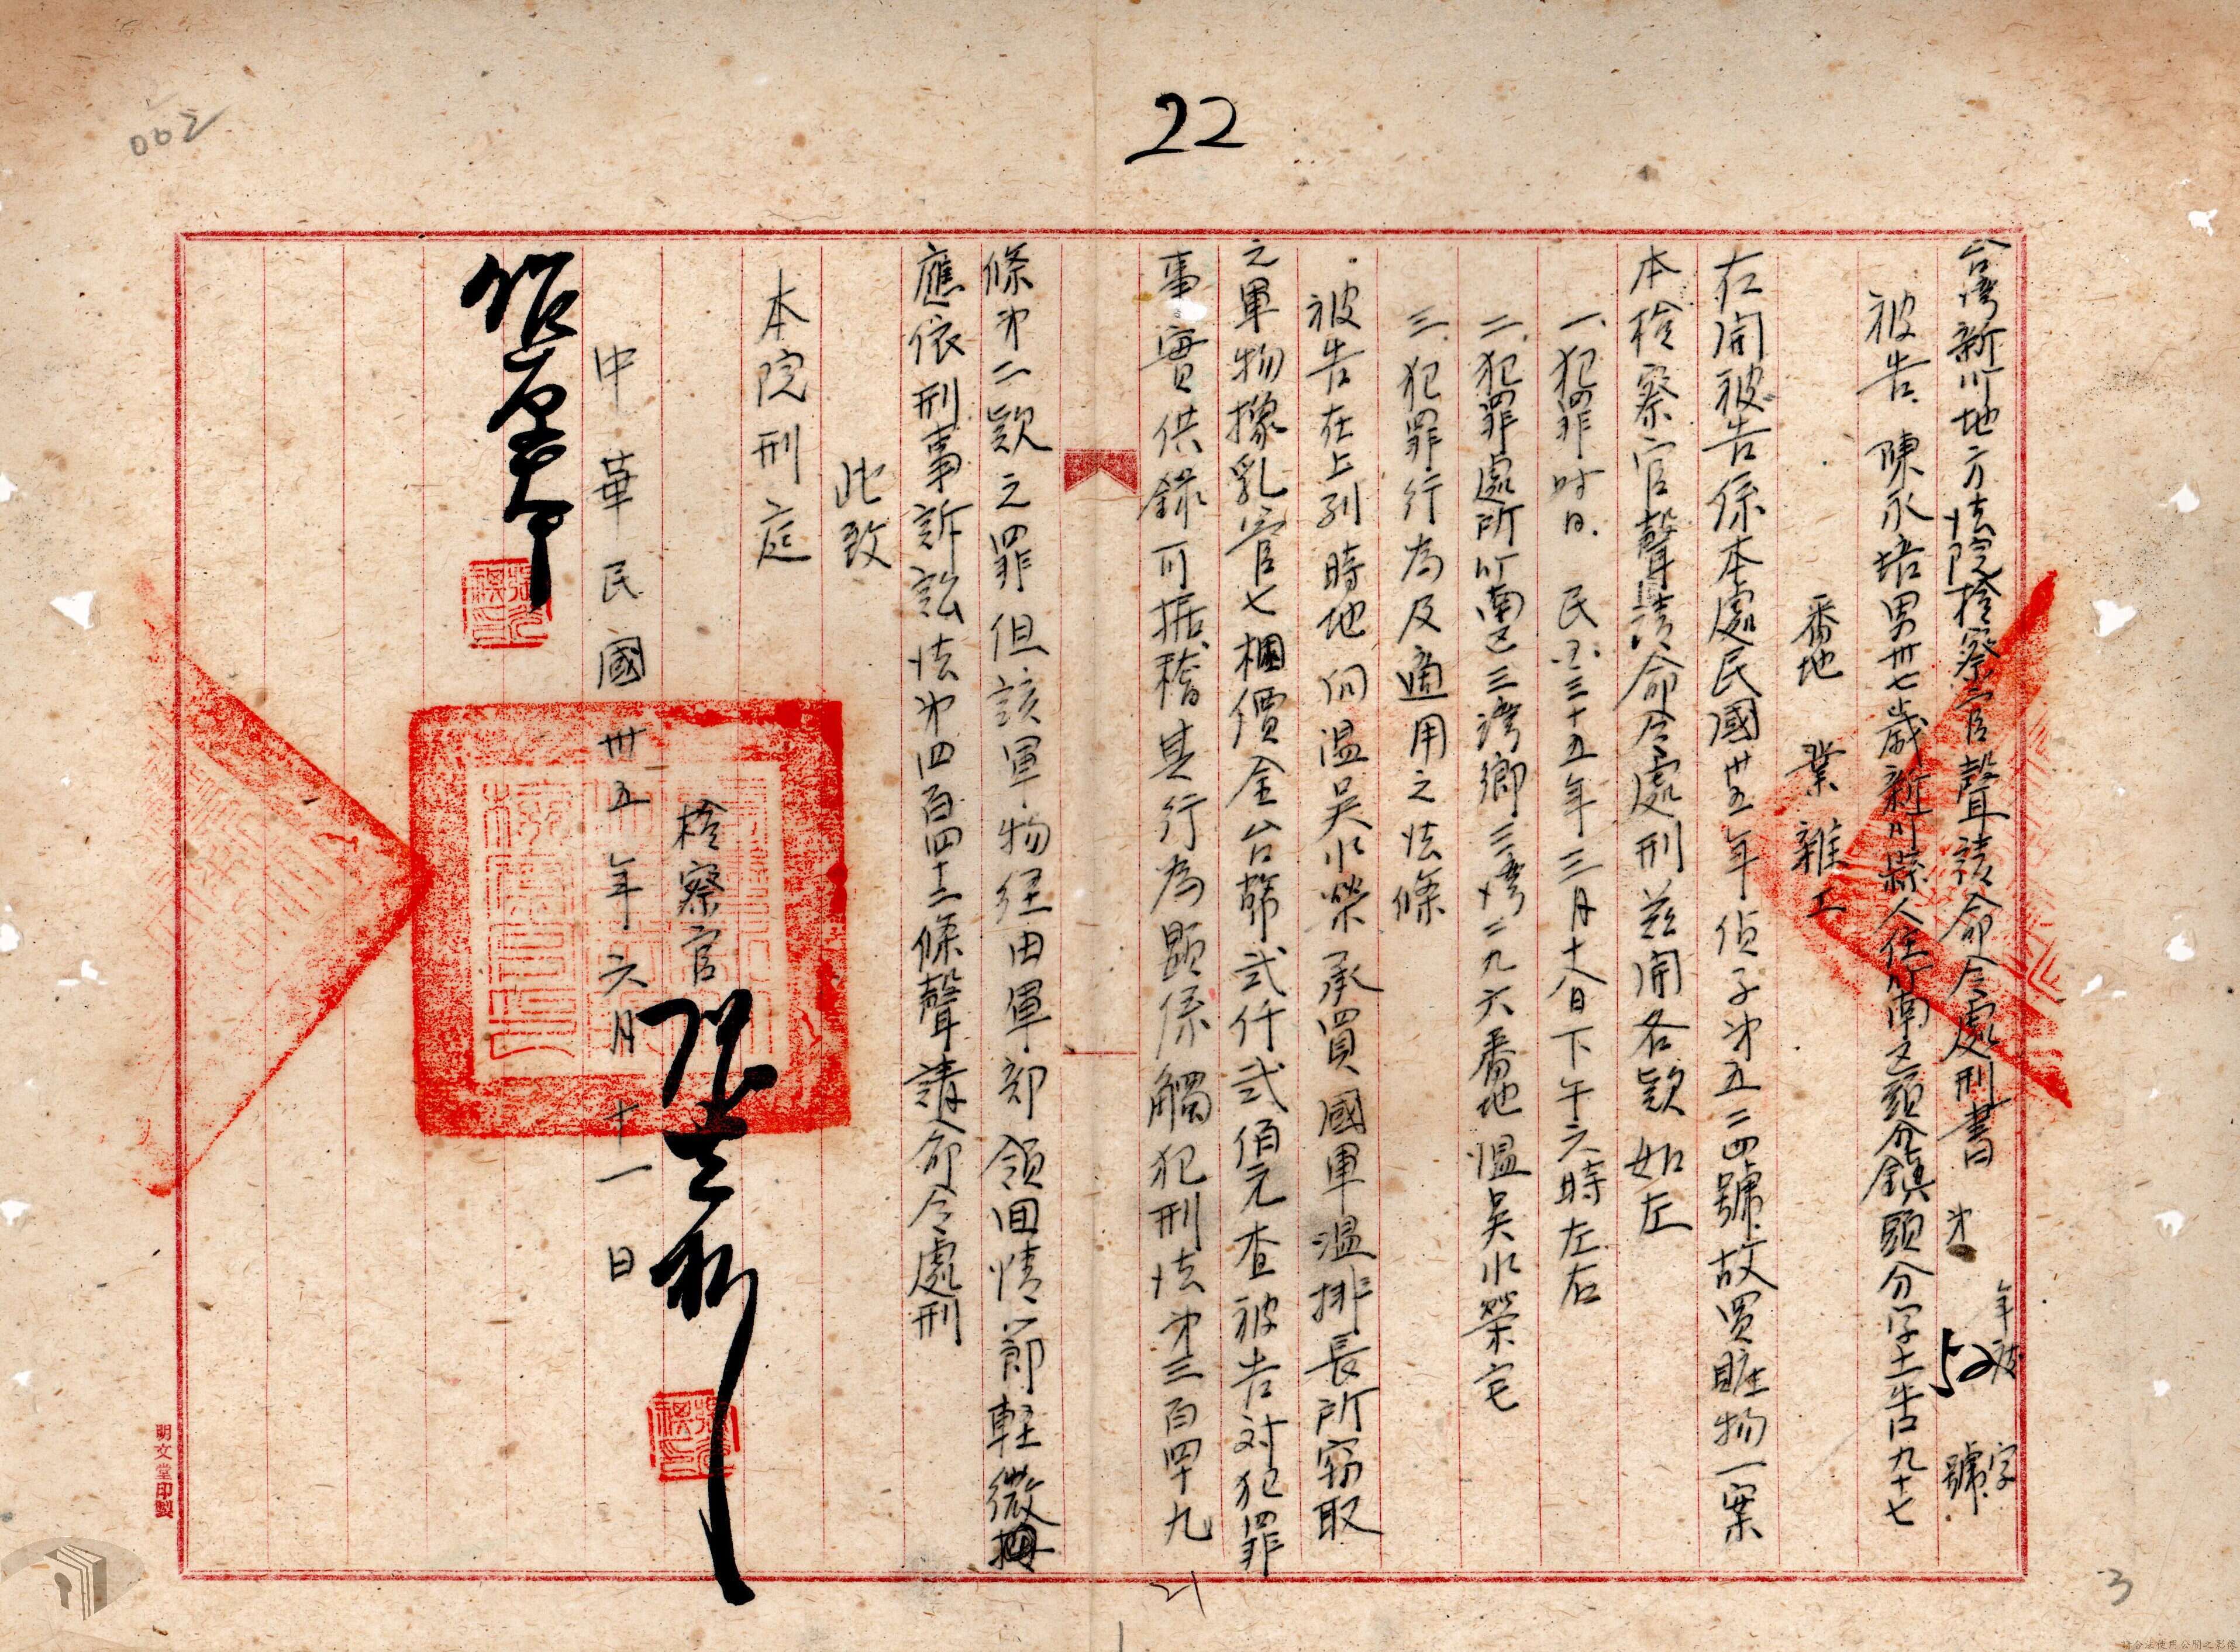 22
台灣新竹地方法院檢察官聲請命令處刑書 年度 字第52號
被告 陳永培 男 卅七歲 新竹縣人住竹南區頭分鎮頭分字土牛口九十七
番地 業 雜工
右開被告係本處民國卅五年偵子第五二四號故買贓物一案
本檢察官聲請命令處刑茲開各款如左
一、犯罪時日 民國三十五年三月十八日下午六時左右
二、犯罪處所竹南區三灣鄉三灣二九六番地溫吳水榮宅
三、犯罪行為及適用之法條
被告在上列時地向溫吳水榮承買國軍溫排長所窃取
之軍物橡乳管七梱價金台幣弍仟弍佰元查被告対犯罪
事實供錄可据稽其行為顯係觸犯刑法第三百四十九
條第二款之罪但該軍物経由軍部領回情節軽微
應依刑事訴訟法第四百四十二條聲請命令處刑
此致
本院刑庭
檢察官
中華民國卅五年六月十一日
明文堂印製
21
3